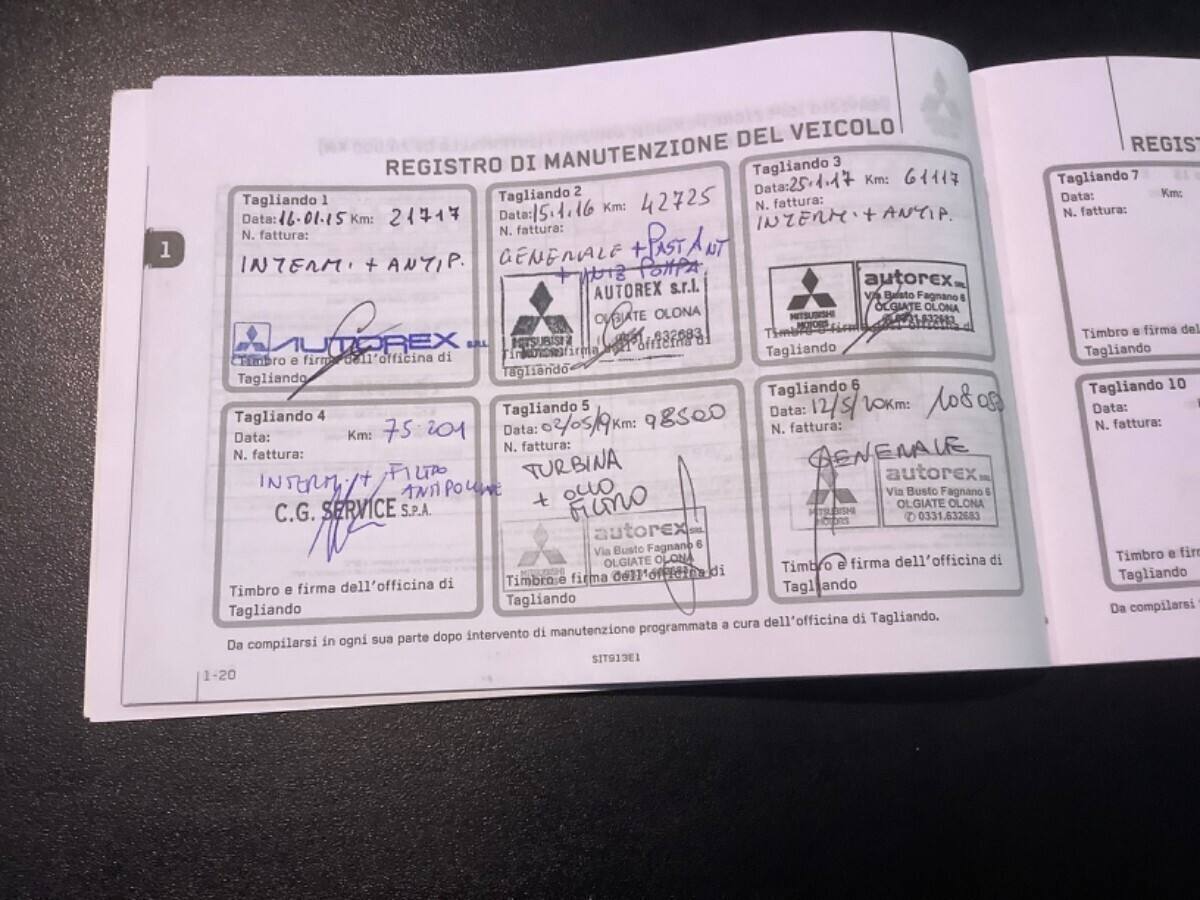 REGISTRO DI MANUTENZIONE DEL VEICOLO
1
Tagliando 1
Data: 16.01.15 Km: 21717
N. fattura:
INTERM. + ANTIP.
MITSUBISHI MOTORS AUTOREX S.R.L.
Timbro e firma dell'officina di
Tagliando
Tagliando 2
Data: 15.1.16 Km: 42725
N. fattura:
GENERALE + PAST ANT
+ POMPA
MITSUBISHI MOTORS
AUTOREX s.r.l.
OLGIATE OLONA
0331.632683
Timbro e firma dell'officina di
Tagliando
Tagliando 3
Data: 25.1.17 Km: 61117
N. fattura:
INTERM. + ANTIP.
MITSUBISHI MOTORS
autorex SRL
Via Busto Fagnano 6
OLGIATE OLONA
✆ 0331.632683
Timbro e firma dell'officina di
Tagliando
Tagliando 4
Data: Km: 75.201
N. fattura:
INTERM. + FILTRO
ANTIPOLLINE
C.G. SERVICE S.P.A.
Timbro e firma dell'officina di
Tagliando
Tagliando 5
Data: 02/05/19 Km: 98500
N. fattura:
TURBINA
+ OLIO
FILTRO
MITSUBISHI
autorex SRL
Via Busto Fagnano 6
OLGIATE OLONA
✆ 0331.632683
Timbro e firma dell'officina di
Tagliando
Tagliando 6
Data: 12/5/20 Km:
N. fattura:
GENERALE
MITSUBISHI MOTORS
autorex SRL
Via Busto Fagnano 6
OLGIATE OLONA
✆ 0331.632683
Timbro e firma dell'officina di
Tagliando
Da compilarsi in ogni sua parte dopo intervento di manutenzione programmata a cura dell'officina di Tagliando.
SIT913E1
1-20
REGIST
Tagliando 7
Data: Km:
N. fattura:
Timbro e firma del
Tagliando
Tagliando 10
Data:
N. fattura:
Timbro e firma
Tagliando
Da compilarsi